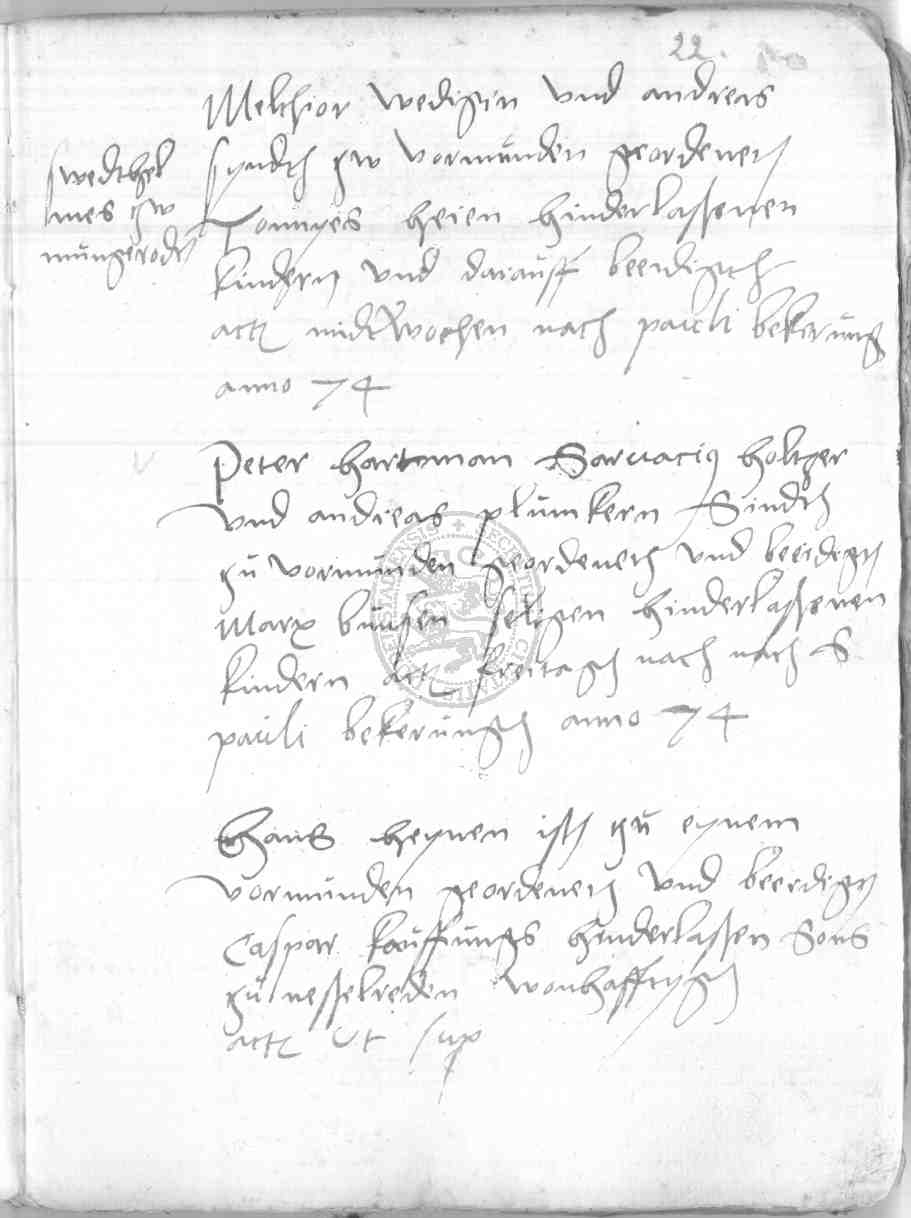 22.
Melchior wedigin vnd andreas
syndth zw vormünden geordeneth
Tonnyes heien hinderlassenen
kindern vnd darauff beeidigeth
actz midtwochen nach pauli bekerüng
anno 74
swedthel
mes zw
müngerode
Peter hartman Saruacius holtzer
vnd andreas plümkern Sindth
zü vormünden geordeneth vnd beeidigth
Marx büüsen seligen hinderlassenen
kindern actz freitagh nach nach S
pauli bekerüngh anno 74
Hans heynen isth zü eynem
vormünden geordeneth vnd beeidigth
Caspar kauffüngs hinderlassen Sons
zü nesselreden wonhafftigh
actz Vt sup